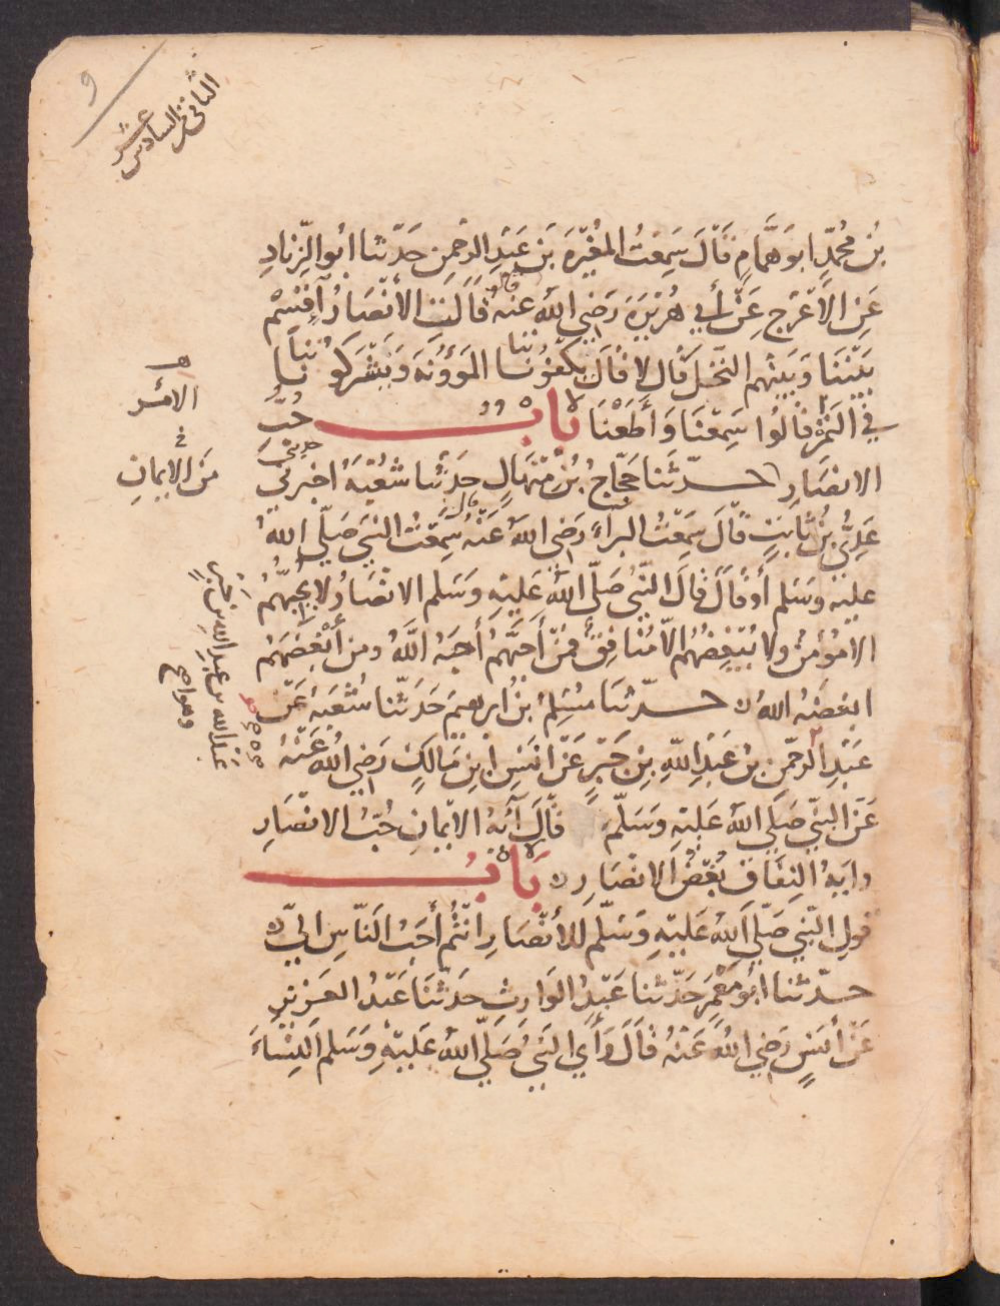 الثاني من السادس
عشر
بْنُ مُحَمَّدٍ ابوهَمَّامٍ قَالَ سَمِعْتُ المُغِيْرَةَ بْنَ عَبْدِ الرَّحْمَنِ حَدَّثنا ابُو الزِّنَادِ
عَنِ الأَعْرَجِ عَنْ أَبِي هُرَيْرَةَ رَضِيَ اللهُ عَنْهُ قَالَ قَالَتِ الأَنْصَارُ اقْسِمْ
بَيْنَنَا وَبَيْنَهُم النَّخْلَ قَالَ لا قَالَ يَكْفُونَنَا المَؤُونَةَ وَيَشْرَكُونَنَا
فِي التَّمْرِ قَالُوا سَمِعْنَا وَأَطَعْنَا بَابُ حُبِّ
الانصَارِ حدّثَنا حَجَّاجُ بْنُ مِنْهَالٍ حَدَّثنا شُعْبَةُ اخْبَرَنِي
حدثني
عَدِيُّ بْنُ ثَابتٍ قَالَ سَمِعْتُ البراءَ رَضِيَ اللهُ عَنْهُ قال سَمِعْتُ النبيَّ صَلَّى اللهُ
عليه وسَلم أوْ قَالَ قَالَ النَّبِيُّ صَلَّى اللهُ عَلَيْهِ وَسَلم الانْصَارُ لا يُحِبُّهُمْ
الا مُؤْمِنٌ ولا يُبْغِضُهُم الّا مُنَافِقٌ فمَنْ أَحَبَّهُمْ أَحَبَّهُ اللَّهُ ومن أَبْغَضَهُمْ
ابغضَهُ اللهُ حدّثنَا مُسْلِمُ بْنُ ابرهيمَ حَدَّثنا شُعْبَةُ عَنْ
عَبْدِ الرَّحمن بْنِ عَبْدِ اللهِ بْنِ جَبْرٍ عَنْ انَسِ ابنِ مَالكٍ رَضِيَ اللهُ عَنْهُ
عَنِ النبيِّ صَلَّى اللهُ عَلَيْهِ وَسَلَّمَ قَالَ آيَةُ الايمانِ حُبُّ الانْصَارِ
وايَةُ النِفَاقِ بُغْضُ الانْصَارِ بَابُ
قولِ النَّبيِّ صَلَّى اللهُ عَلَيْهِ وَسَلَّمَ لِلأَنْصَارِ انْتُمْ أَحَبُّ النَّاسِ اليَّ
حدّثنا أَبُو مَعْمَرٍ حَدَّثنا عَبْدُ الوَارِثِ حَدَّثَنَا عَبْدُ العَزِيزِ
عَنْ أَنَسٍ رَضِيَ اللهُ عَنْهُ قَالَ رَأَى النَبيُّ صَلَّى اللهُ عَلَيْهِ وَسَلم النِّسَاءَ
مِنَ الايمانِ
عَبْدِ الله بن عبد الله بن جَبْرٍ
وهو اصح